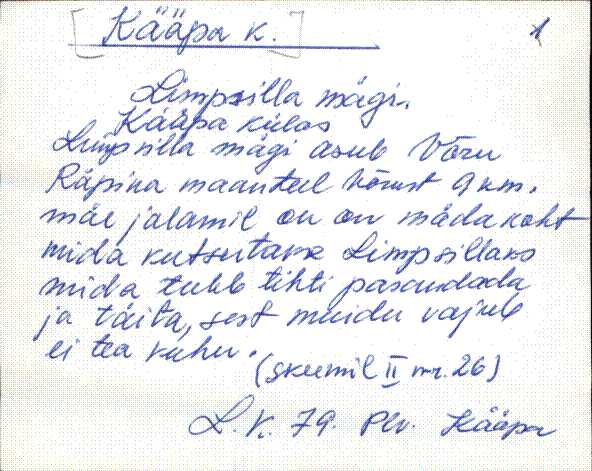 [Kääpa k.] 1
Limpsilla mägi.
Kääpa külas
Limpsilla mägi asub Võru
Räpina maanteel Võrust 9 km.
mäe jalamil on on mädakoht
mida kutsutakse Limpsillaks
mida tuleb tihti parandada
ja täita, sest muidu vajub
ei tea kuhu.
(skeemil II nr. 26)
L. K. 79. Plv. Kääpa